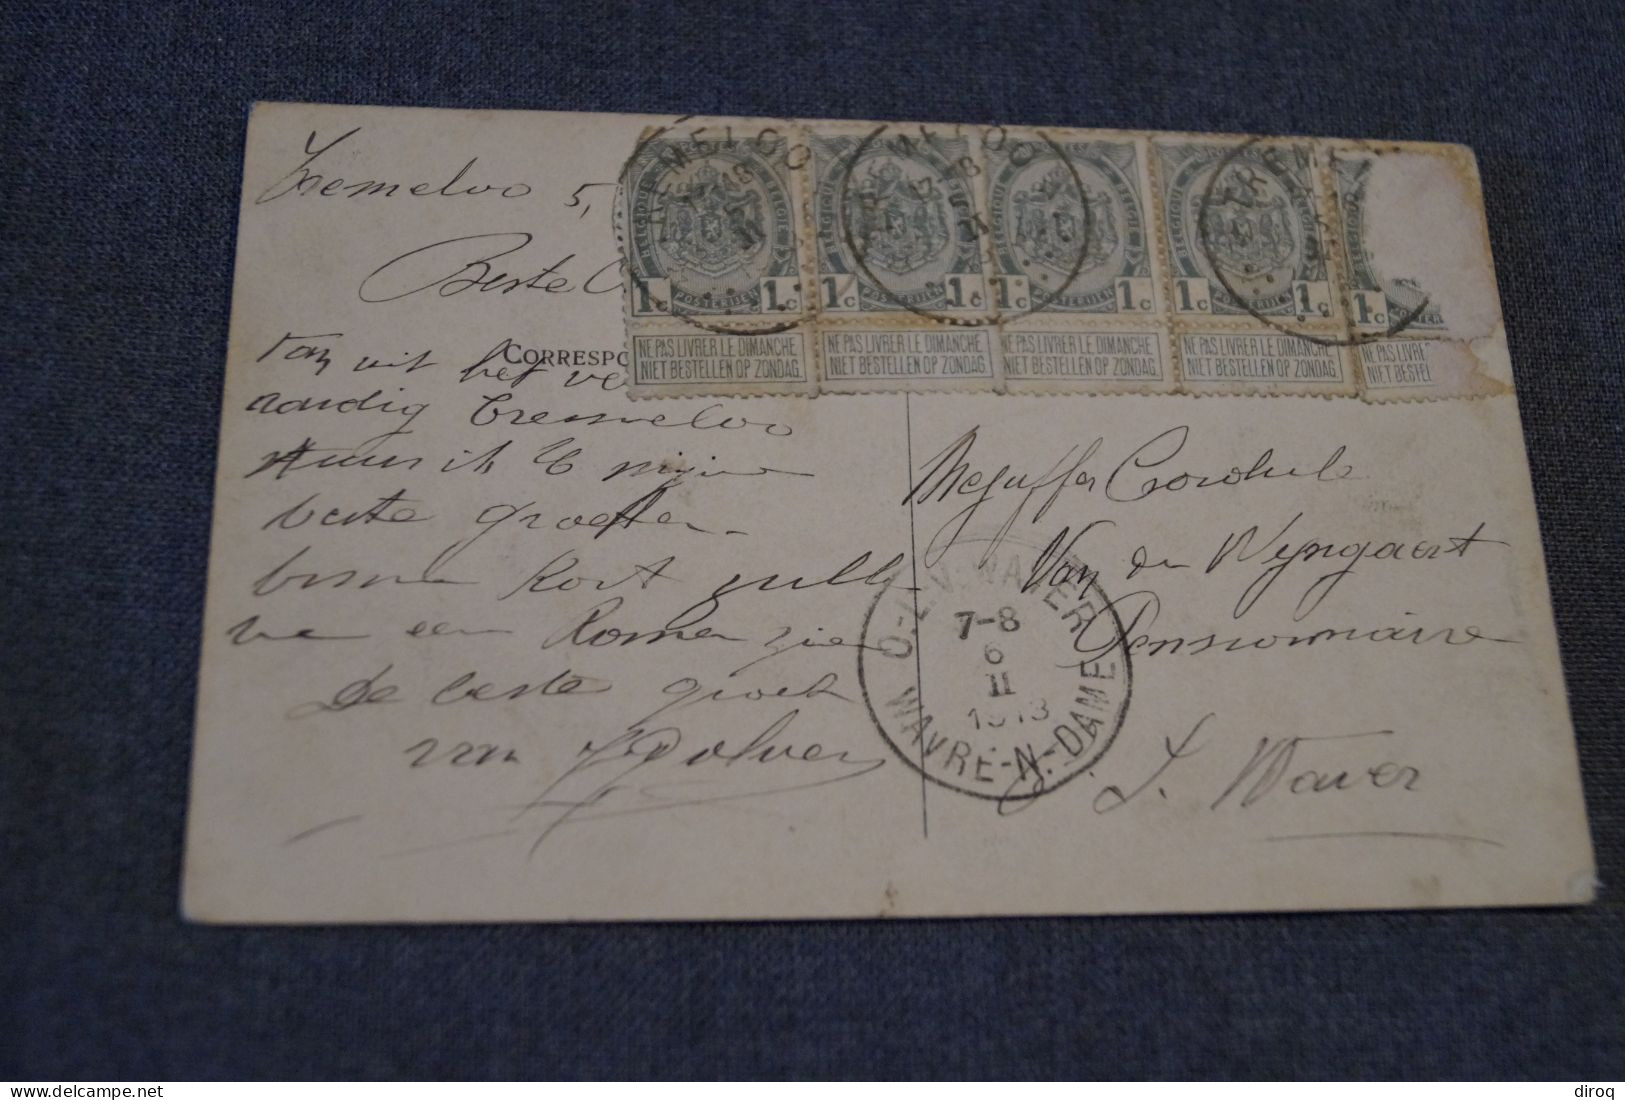 Tremeloo 5,
Beste
Van uit het
aardig Tremeloo
stuur ik U mijne
beste groeten
binnen kort zullen
we een Komen zien
de beste groet
van
CORRESPO
TREMELOO
17-18
5
11
TREMELOO
18
5
11
TREMELOO
BELGIQUE POSTES BELGIË
1c POSTERIJEN 1c
NE PAS LIVRER LE DIMANCHE
NIET BESTELLEN OP ZONDAG.
1c POSTERIJEN 1c
NE PAS LIVRER LE DIMANCHE
NIET BESTELLEN OP ZONDAG.
1c POSTERIJEN 1c
NE PAS LIVRER LE DIMANCHE
NIET BESTELLEN OP ZONDAG.
1c POSTERIJEN 1c
NE PAS LIVRER LE DIMANCHE
NIET BESTELLEN OP ZONDAG.
1c
NE PAS LIVRE
NIET BESTEL
Mejuffer Cordule
Van den Wyngaert
Pensionnaire
Waver
O.-L.-V.-WAVER
7-8
6
11
1913
WAVRE-N.-DAME
diroq